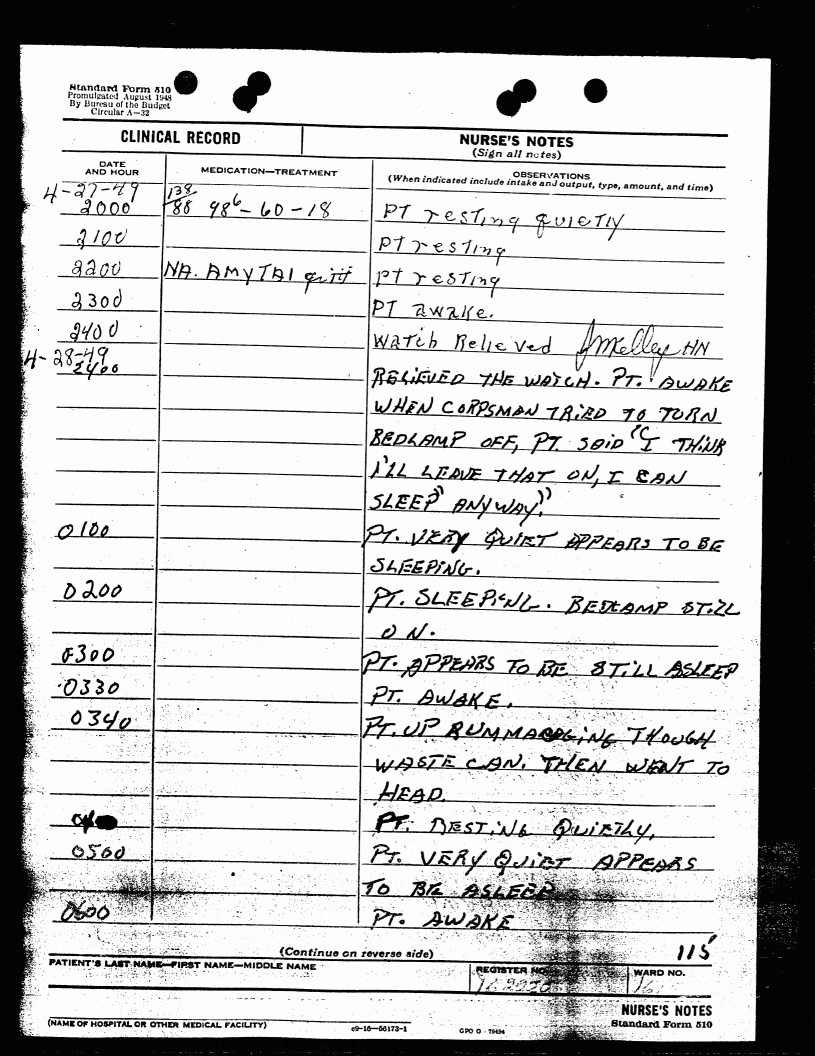 Standard Form 510
Promulgated August 1948
By Bureau of the Budget
Circular A—32
CLINICAL RECORD
NURSE'S NOTES
(Sign all notes)
DATE AND HOUR
MEDICATION—TREATMENT
OBSERVATIONS
(When indicated include intake and output, type, amount, and time)
4-27-49 138/88
2000 98⁶-60-18 PT resting quietly
2100 PT resting
2200 NA. AMYTAL PT resting
2300 PT awake.
2400 Watch Relieved HN
4-28-49
2400 RELIEVED THE WATCH. PT. AWAKE
WHEN CORPSMAN TRIED TO TURN
BEDLAMP OFF, PT. SAID "I THINK
I'LL LEAVE THAT ON, I CAN
SLEEP" ANYWAY."
0100 PT. VERY QUIET APPEARS TO BE
SLEEPING.
0200 PT. SLEEPING. BEDLAMP STILL
ON.
0300 PT. APPEARS TO BE STILL ASLEEP
0330 PT. AWAKE.
0340 PT. UP RUMMAGING THOUGH
WASTE CAN. THEN WENT TO
HEAD.
PT. RESTING QUIETLY.
0500 PT. VERY QUIET APPEARS
TO BE ASLEEP
0600 PT. AWAKE
(Continue on reverse side)
115
PATIENT'S LAST NAME—FIRST NAME—MIDDLE NAME
REGISTER NO.
WARD NO.
16
NURSE'S NOTES
Standard Form 510
(NAME OF HOSPITAL OR OTHER MEDICAL FACILITY)
c9-16—56173-1
GPO O - 79494